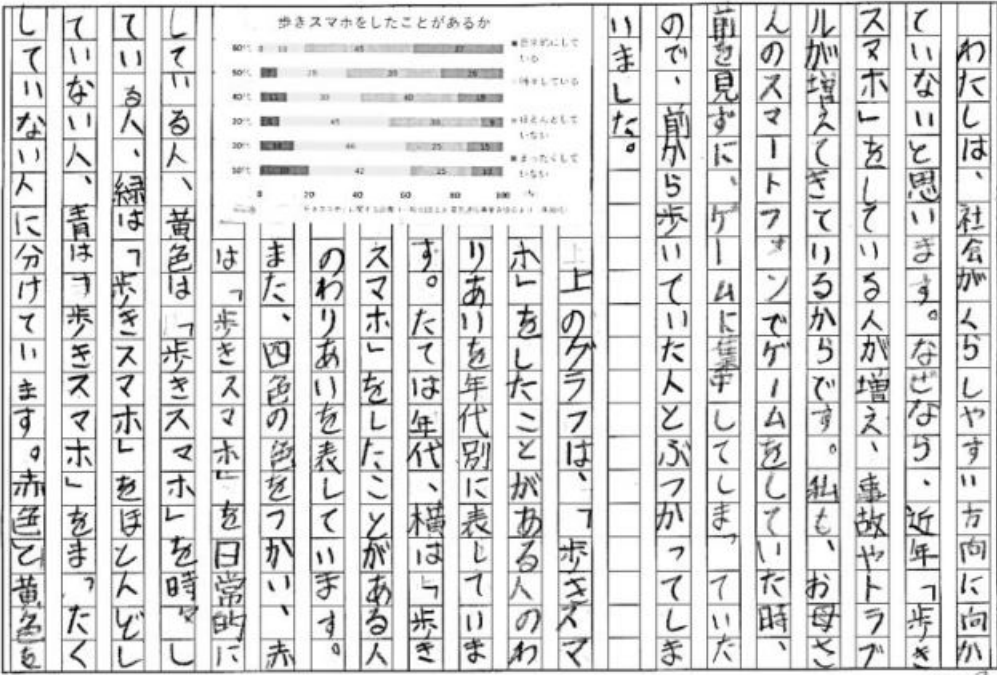 わたしは、社会がくらしやすい方向に向か
っていないと思います。なぜなら、近年「歩き
スマホ」をしている人が増え、事故やトラブ
ルが増えてきているからです。私も、お母さ
んのスマートフォンでゲームをしていた時、
前を見ずに、ゲームに集中してしまっていた
ので、前から歩いていた人とぶつかってしま
いました。
歩きスマホをしたことがあるか
60代
50代
40代
20代
0 20 40 60 80 100
日常的にして
いる
時々している
ほとんどして
いない
まったくして
いない
上のグラフは、「歩きスマ
ホ」をしたことがある人のわ
りあいを年代別に表していま
す。たては年代、横は「歩き
スマホ」をしたことがある人
のわりあいを表しています。
また、四色の色をつかい、赤
は「歩きスマホ」を日常的に
している人、黄色は「歩きスマホ」を時々し
ている人、緑は「歩きスマホ」をほとんどし
ていない人、青は「歩きスマホ」をまったく
していない人に分けています。赤色と黄色を